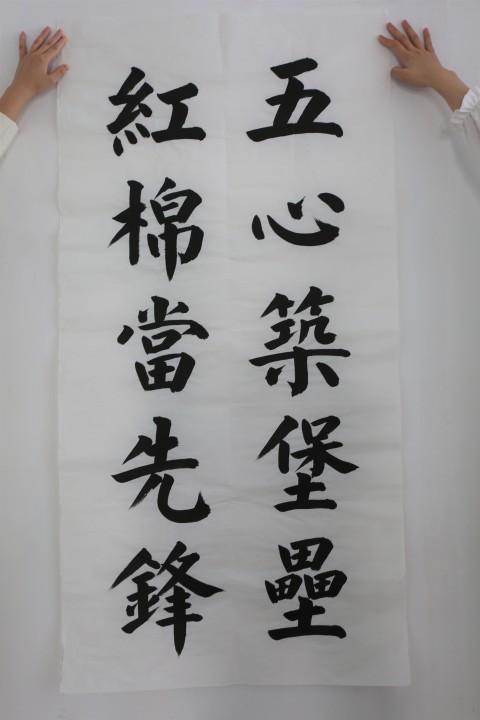 五心築堡壘
紅棉當先鋒